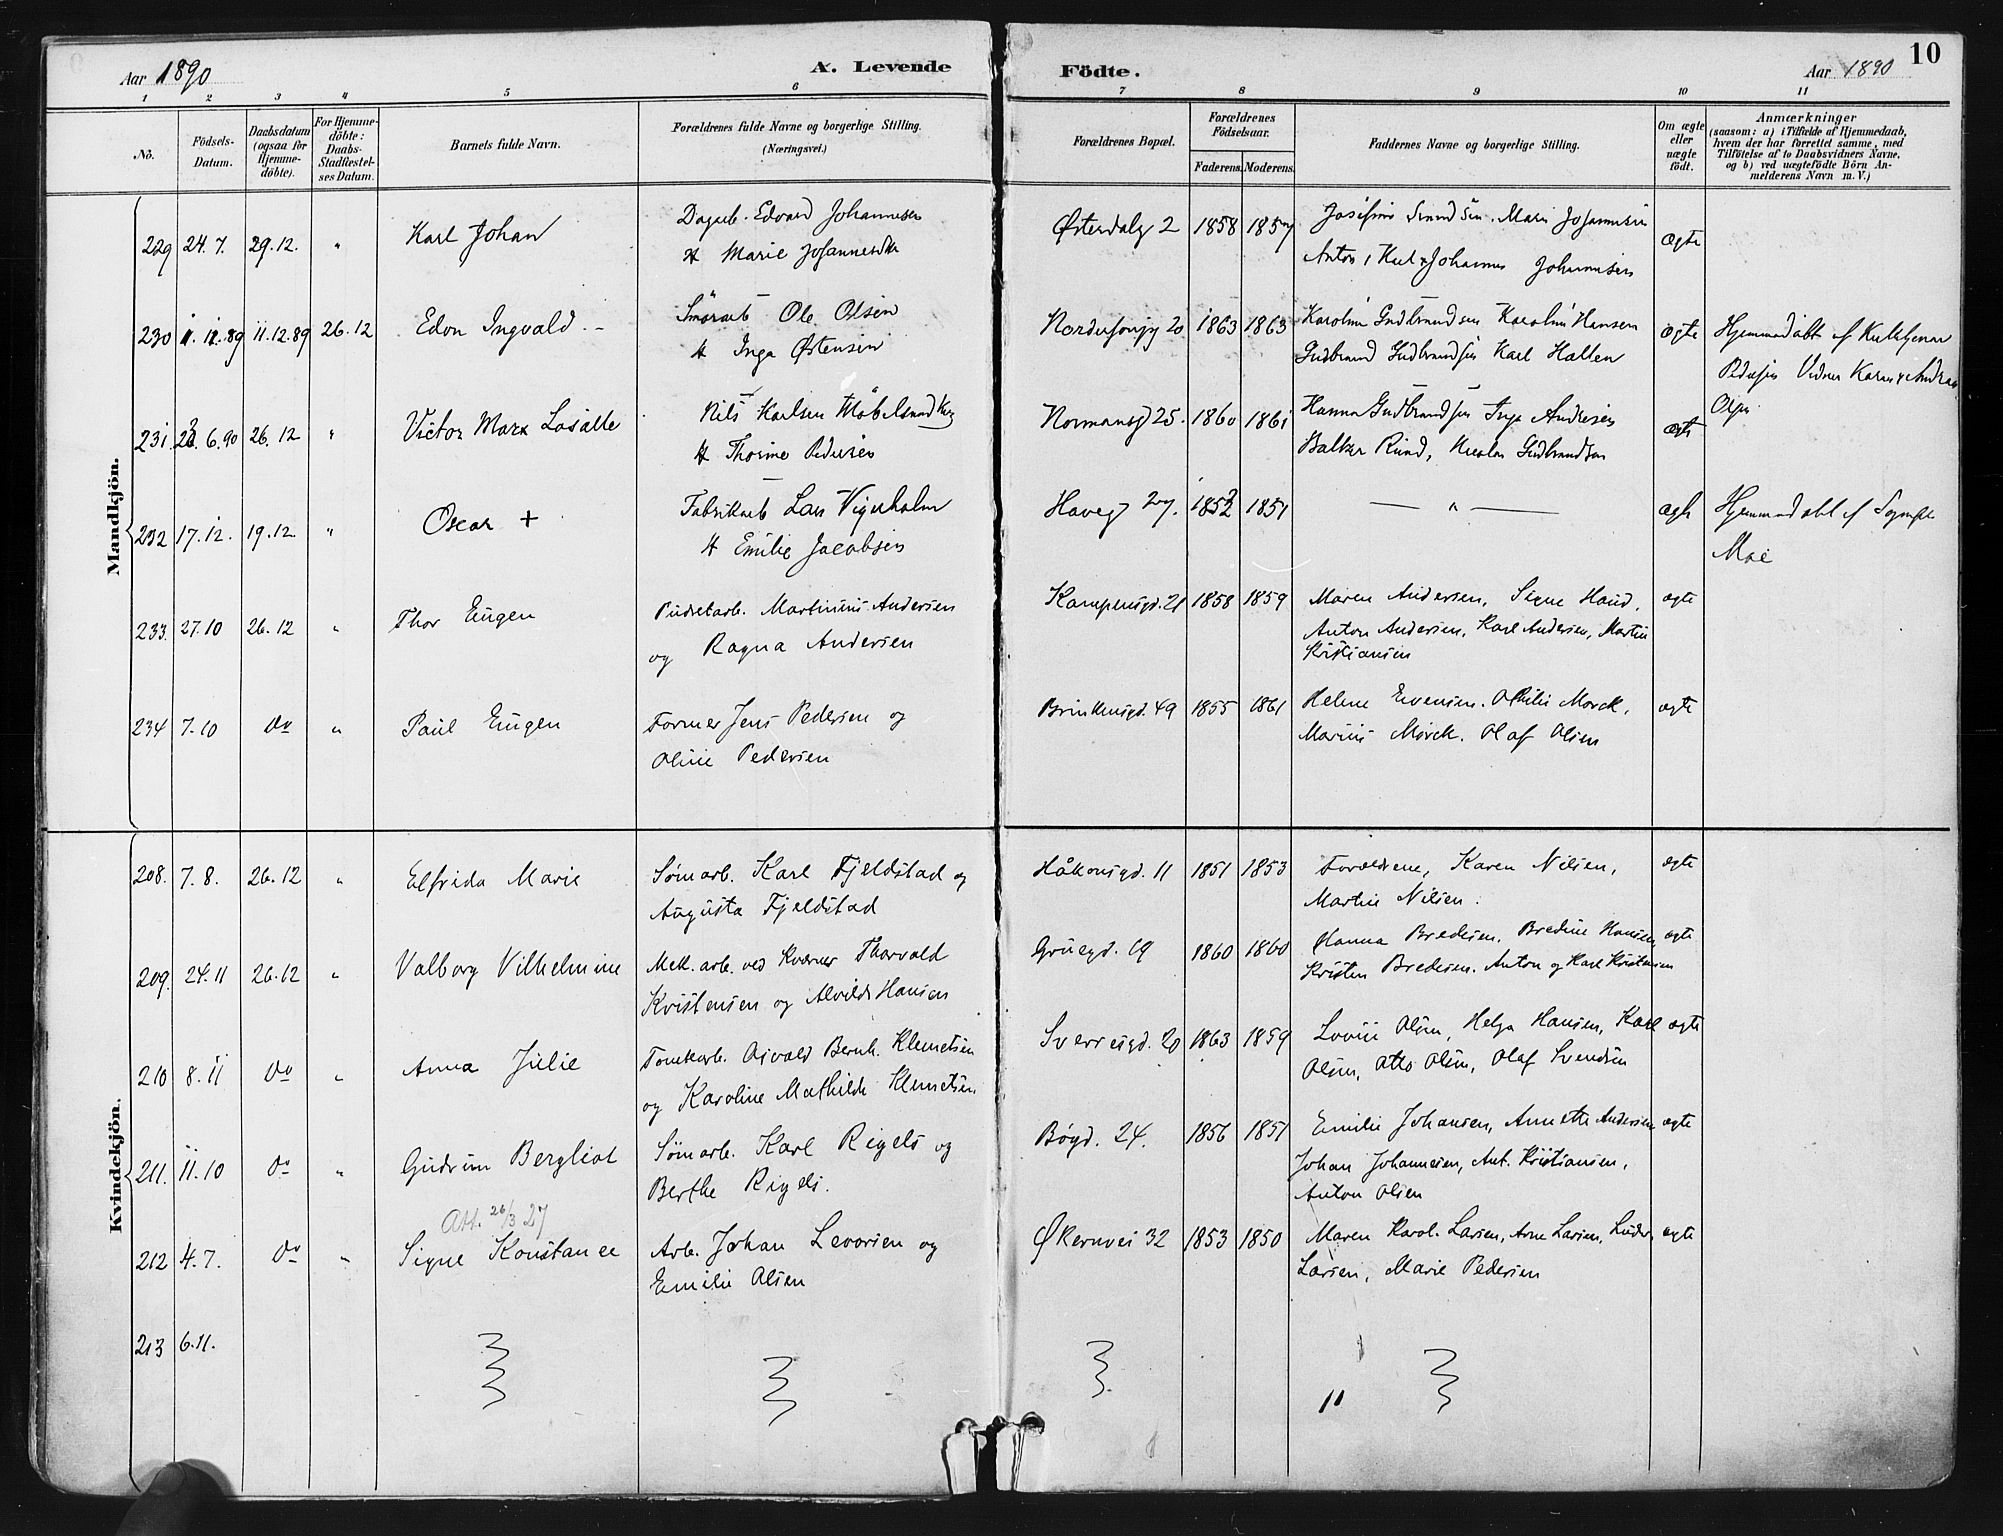 Aar 1890
A. Levende
Födte.
Aar 1890
10
1 2 3 4 5 6 7 8 9 10 11
No.
Födsels-Datum.
Daabsdatum (ogsaa for Hjemme-döbte).
For Hjemme-döbte: Daabs-Stadfæstel-ses Datum.
Barnets fulde Navn.
Forældrenes fulde Navne og borgerlige Stilling.
(Næringsvei.)
Forældrenes Bopæl.
Forældrenes Födselsaar.
Faderens. Moderens.
Faddernes Navne og borgerlige Stilling.
Om ægte eller uægte födt.
Anmærkninger
(saasom: a) i Tilfælde af Hjemmedaab,
hvem der har forrettet samme, med
Tilföielse af to Daabsvidners Navne,
og b) ved uægtefödte Börn An-
melderens Navn m. V.)
Mandkjön.
229 24.7. 29.12. " Karl Johan Dagarb. Edvard Johannesen Østerdalg 2 1858 1857 Marie Johannesen ægte
Marie Anton, Johannes Johannesen
230 11.12.89 26.12 Edon Ingvald Ole Olsen 20 1863 1863 Karolin Gudbrandsen Karolin Hansen ægte
Inga Østensen Gudbrand Gudbrandsen Karl Hallen
Vidner Karen Andrea
Olsen
231 6.90 26.12 " Victor Marx Lasalle Nils Karlsen Normansg 25. 1860 1861 Hanna Gudbrandsen Inga Andresen ægte
Pedersen Gudbrandsen
232 17.12. 19.12 " Oscar + Fabrikarb Lars Haveg 27. 1852 1851 — " — ægte
Emilie Jacobsen Moe
233. 27.10 26.12 " Thor Eugen Martinius Andersen Kampensgd. 21 1858 1859 Maren Andersen, Signe Haud, ægte
og Ragna Andersen Anton Andersen, Karl Andersen, Martin
Kristiansen
234 7.10 do " Paul Eugen Former Jens Pedersen og Brinkensgd. 49 1855 1861 Helene Evensen. Othilie Morck, ægte
Oline Pedersen Marius Mørck. Olaf Olsen
Kvindekjön.
208. 7.8. 26.12 " Elfrida Marie Sømarb. Karl Fjeldstad og Håkonsgd. 11 1851 1853 Forældrene, Karen Nilsen, ægte
Augusta Fjeldstad Martin Nilsen.
209. 24.11 26.12 " Valborg Vilhelmine Mek. arb. ved Kværner Thorvald Grüegd. 19 1860 1860 Hanna Bredesen, Bredine Hansen, ægte
Kristensen og Alvilde Hansen Kristen Bredesen. Anton og Karl Kristensen
210 8.11 do " Anna Julie Tomtearb. Osvald Bernh. Klemetsen Sverresgd. 20 1863 1859 Lovise Olsen, Helga Hansen, Karl ægte
og Karoline Mathilde Klemetsen Olsen, Otto Olsen, Olaf Svendsen
211. 11.10 do " Gudrun Bergliot Sømarb. Karl Rigels og Bøgd. 24. 1856 1851 Emilie Johansen, Annette Andersen ægte
Berthe Rigels. Johan Johannesen, Ant. Kristiansen,
Anton Olsen
Att. 26/3 27
212 4.7. do " Signe Konstance Arb. Johan Levorsen og Økernvei 32 1853 1850 Maren Karol. Larsen, Arne Larsen, Ludv. ægte
Emilie Olsen Larsen, Marie Pedersen
213 6.11.